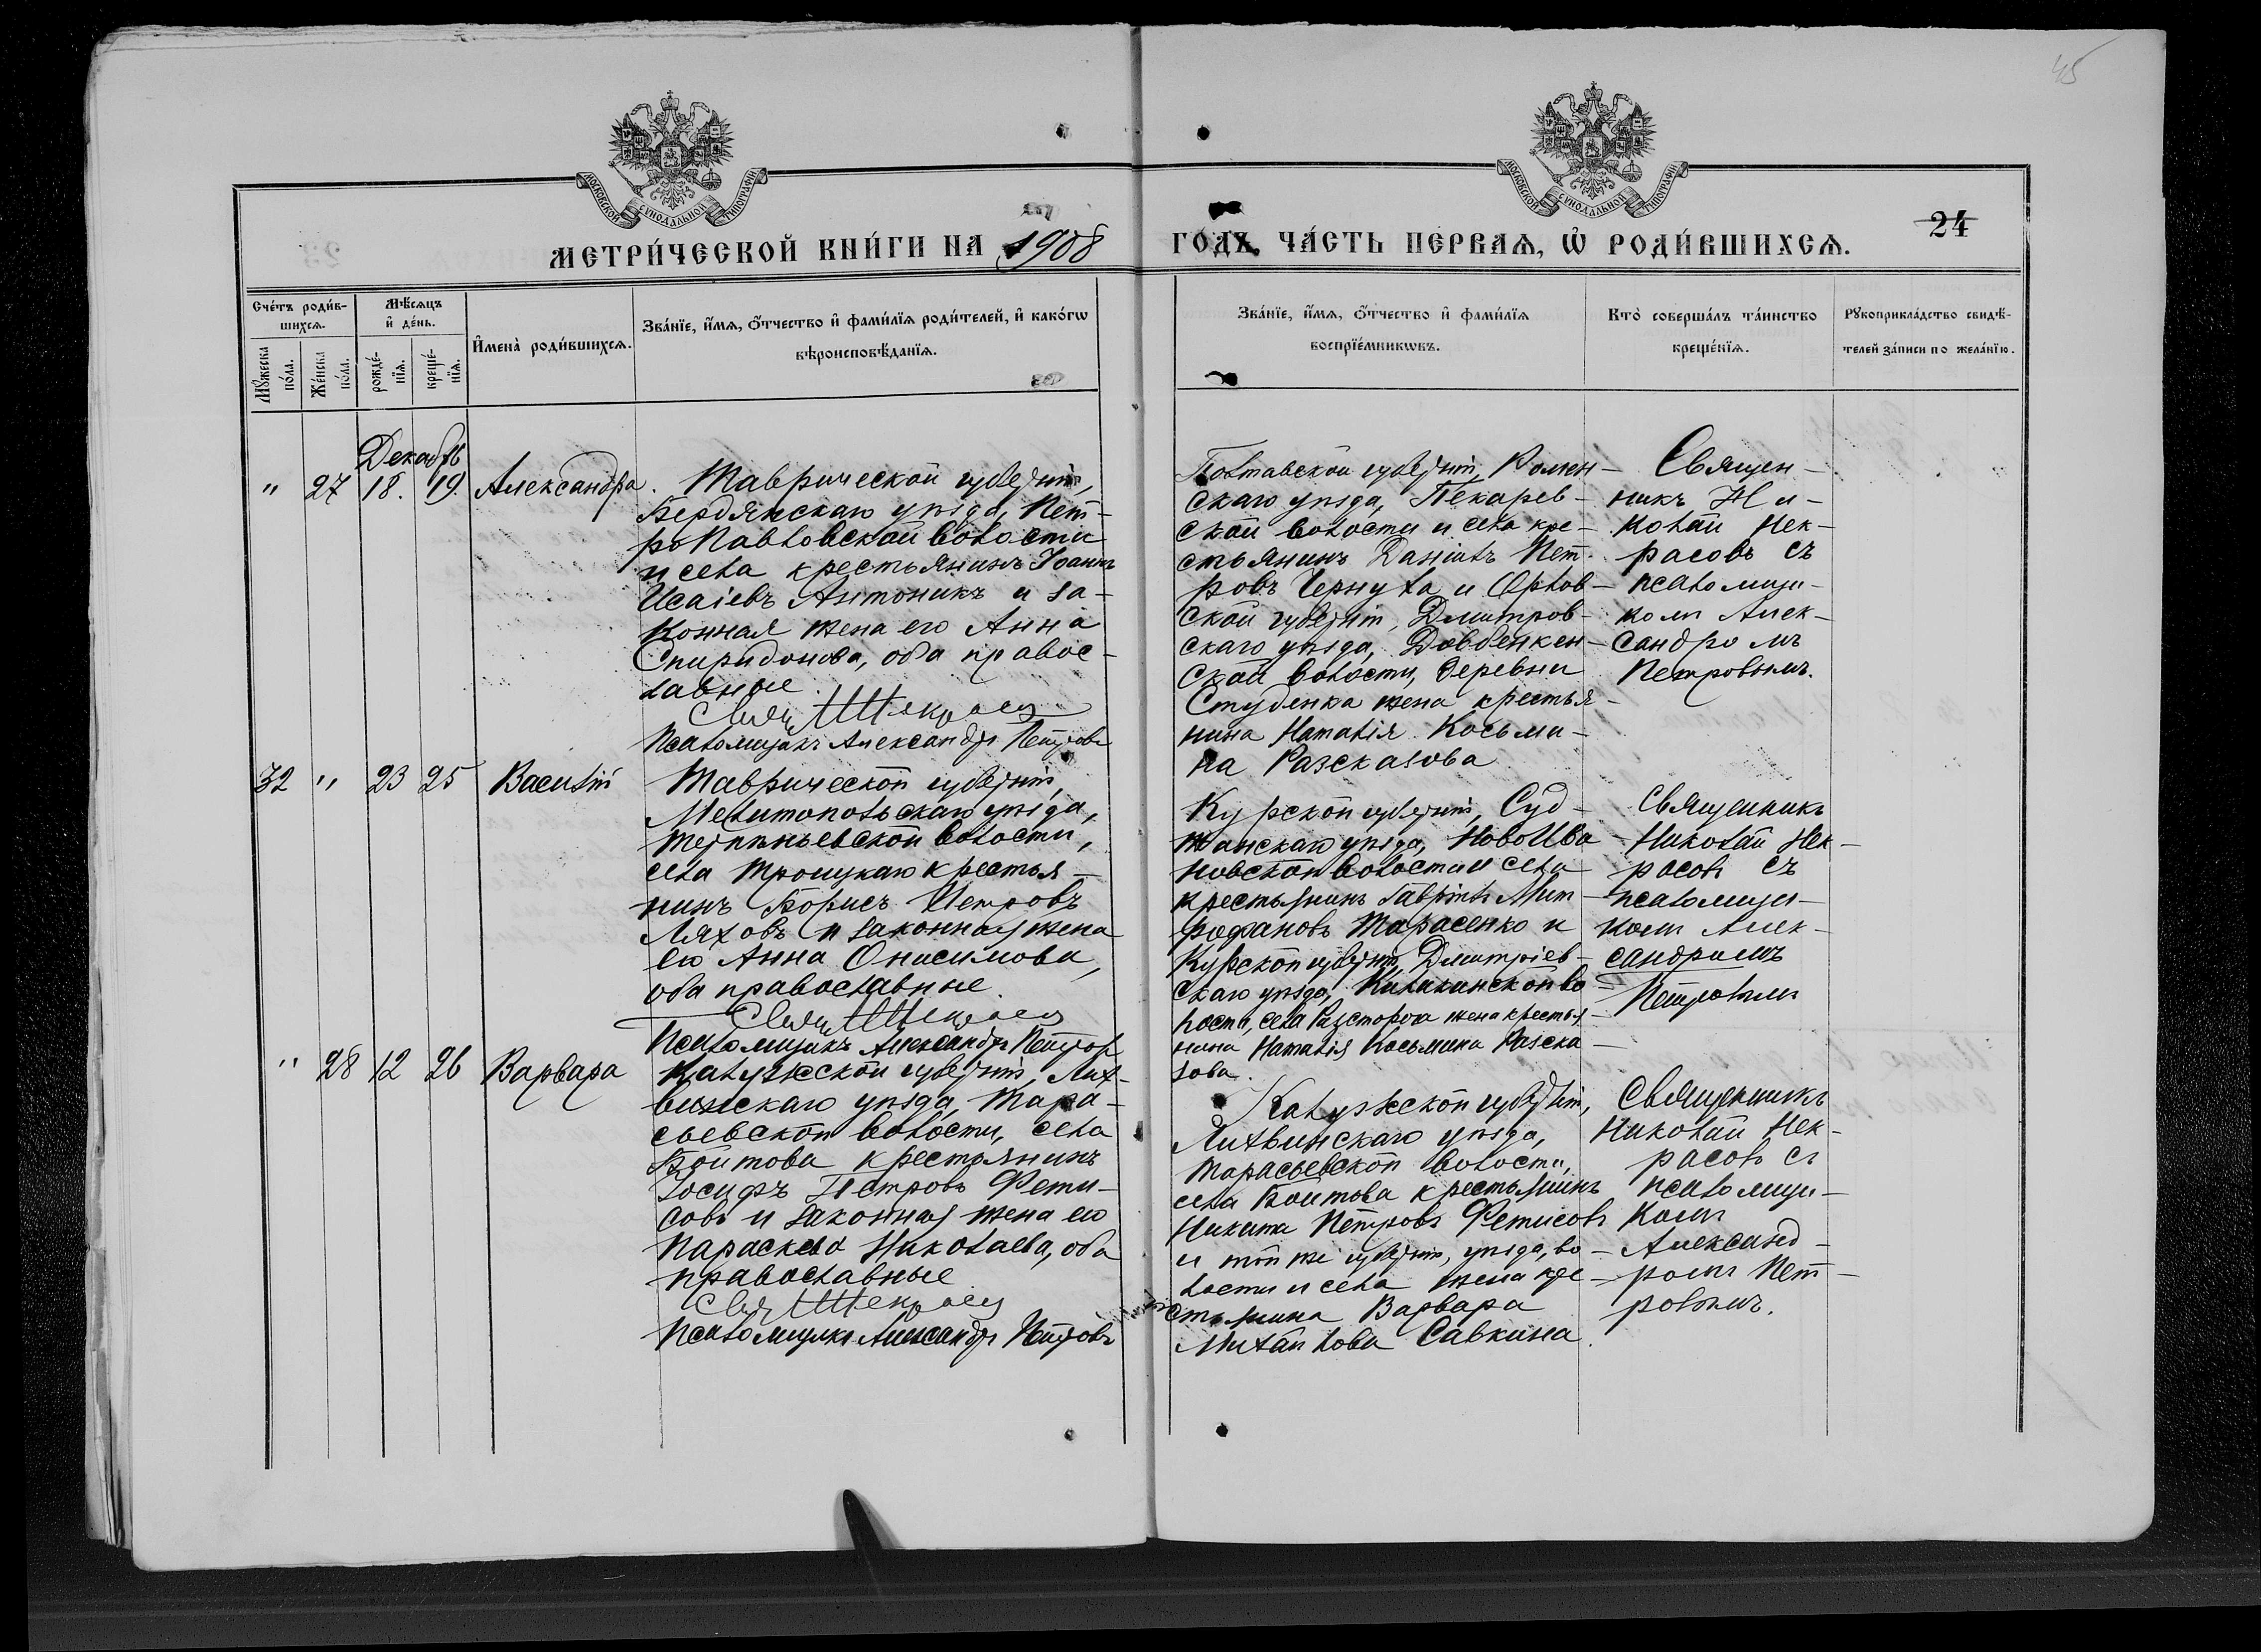 45
МОСКОВСКОЙ СѴНОДАЛЬНОЙ ТИПОГРАФІИ
МОСКОВСКОЙ СѴНОДАЛЬНОЙ ТИПОГРАФІИ
МЕТРИ́ЧЕСКОЙ КНИ́ГИ НА 1908
ГОДЪ, ЧА́СТЬ ПЕРВАѦ, Ѿ РОДИ́ВШИХСѦ.
24
Сче́тъ роди́в-
шихсѧ.
Мꙋ́жеска
по́ла.
Же́нска
по́ла.
Мѣ́сѧцъ
и҆ де́нь.
рожде́-
нїѧ.
креще́-
нїѧ.
И҆мена̀ роди́вшихсѧ.
Зва́нїе, и҆́мѧ, ѻ҆́тчество и҆ фами́лїѧ роди́телей, и҆ како́гѡ
вѣроисповѣ́данїѧ.
Зва́нїе, и҆́мѧ, ѻ҆́тчество и҆ фами́лїѧ
воспрїе́мникѡвъ.
Кто̀ соверша́лъ та́инство
креще́нїѧ.
Рꙋкоприкла́дство свидѣ́-
телей за́писи по жела́нїю.
Декабрь
" 27 18. 19. Александра.
Таврической губерніи,
Бердянскаго уѣзда, Пет-
ропавловской волости
и села крестьянинъ Іоаннъ
Исаіевъ Антоникъ и за-
конная жена его Анна
Спиридонова, оба правос-
лавные.
Свящ. Н. Некрасов
Псаломщикъ Александръ Петровъ
Полтавской губерніи, Ромен-
скаго уѣзда, Пекарев-
ской волости и села кре-
стьянинъ Даніилъ Пет-
ровъ Чернуха и Орлов-
ской губерніи, Дмитров-
скаго уѣзда, Девбенкен-
ской волости, деревни
Студенка жена крестья-
нина Наталія Косьми-
на Разсказова
Священ-
никъ Ни-
колай Нек-
расовъ съ
псаломщи-
комъ Алек-
сандромъ
Петровымъ.
32 " 23 25 Василій
Таврической губерніи,
Мелитопольскаго уѣзда,
Терпѣньевской волости,
села Троицкаго крестья-
нинъ Борисъ Петровъ
Ляховъ и законная жена
его Анна Онисимова,
оба православные.
Свящ. Н. Некрасов
Псаломщикъ Александръ Петров
Курской губерніи, Суд-
жанскаго уѣзда, НовоИва-
новской волости и села
крестьянинъ Гавріилъ Мит-
рофановъ Тарасенко и
Курской губерніи, Дмитріев-
скаго уѣзда, во-
лости, села жена крестья-
нина Наталія Косьмина Разска-
зова.
Священникъ
Николай Нек-
расовъ съ
псаломщи-
комъ Алек-
сандромъ
Петровымъ
" 28 12 26 Варвара
Калужской губерніи, Лих-
винскаго уѣзда, Тара-
сьевской волости, села
Боитова крестьянинъ
Іосифъ Петровъ Фети-
совъ и законная жена его
Параскева Николаева, оба
православные
Свящ. Н. Некрасов
Псаломщикъ Александръ Петровъ
Калужской губерніи,
Лихвинскаго уѣзда,
Тарасьевской волости,
села Боитова крестьянинъ
Никита Петровъ Фетисовъ
и той же губерніи, уѣзда, во-
лости и села жена кре-
стьянина Варвара
Михайлова Савкина.
Священникъ
Николай Нек-
расовъ съ
псаломщи-
комъ
Александ-
ромъ Пет-
ровымъ.